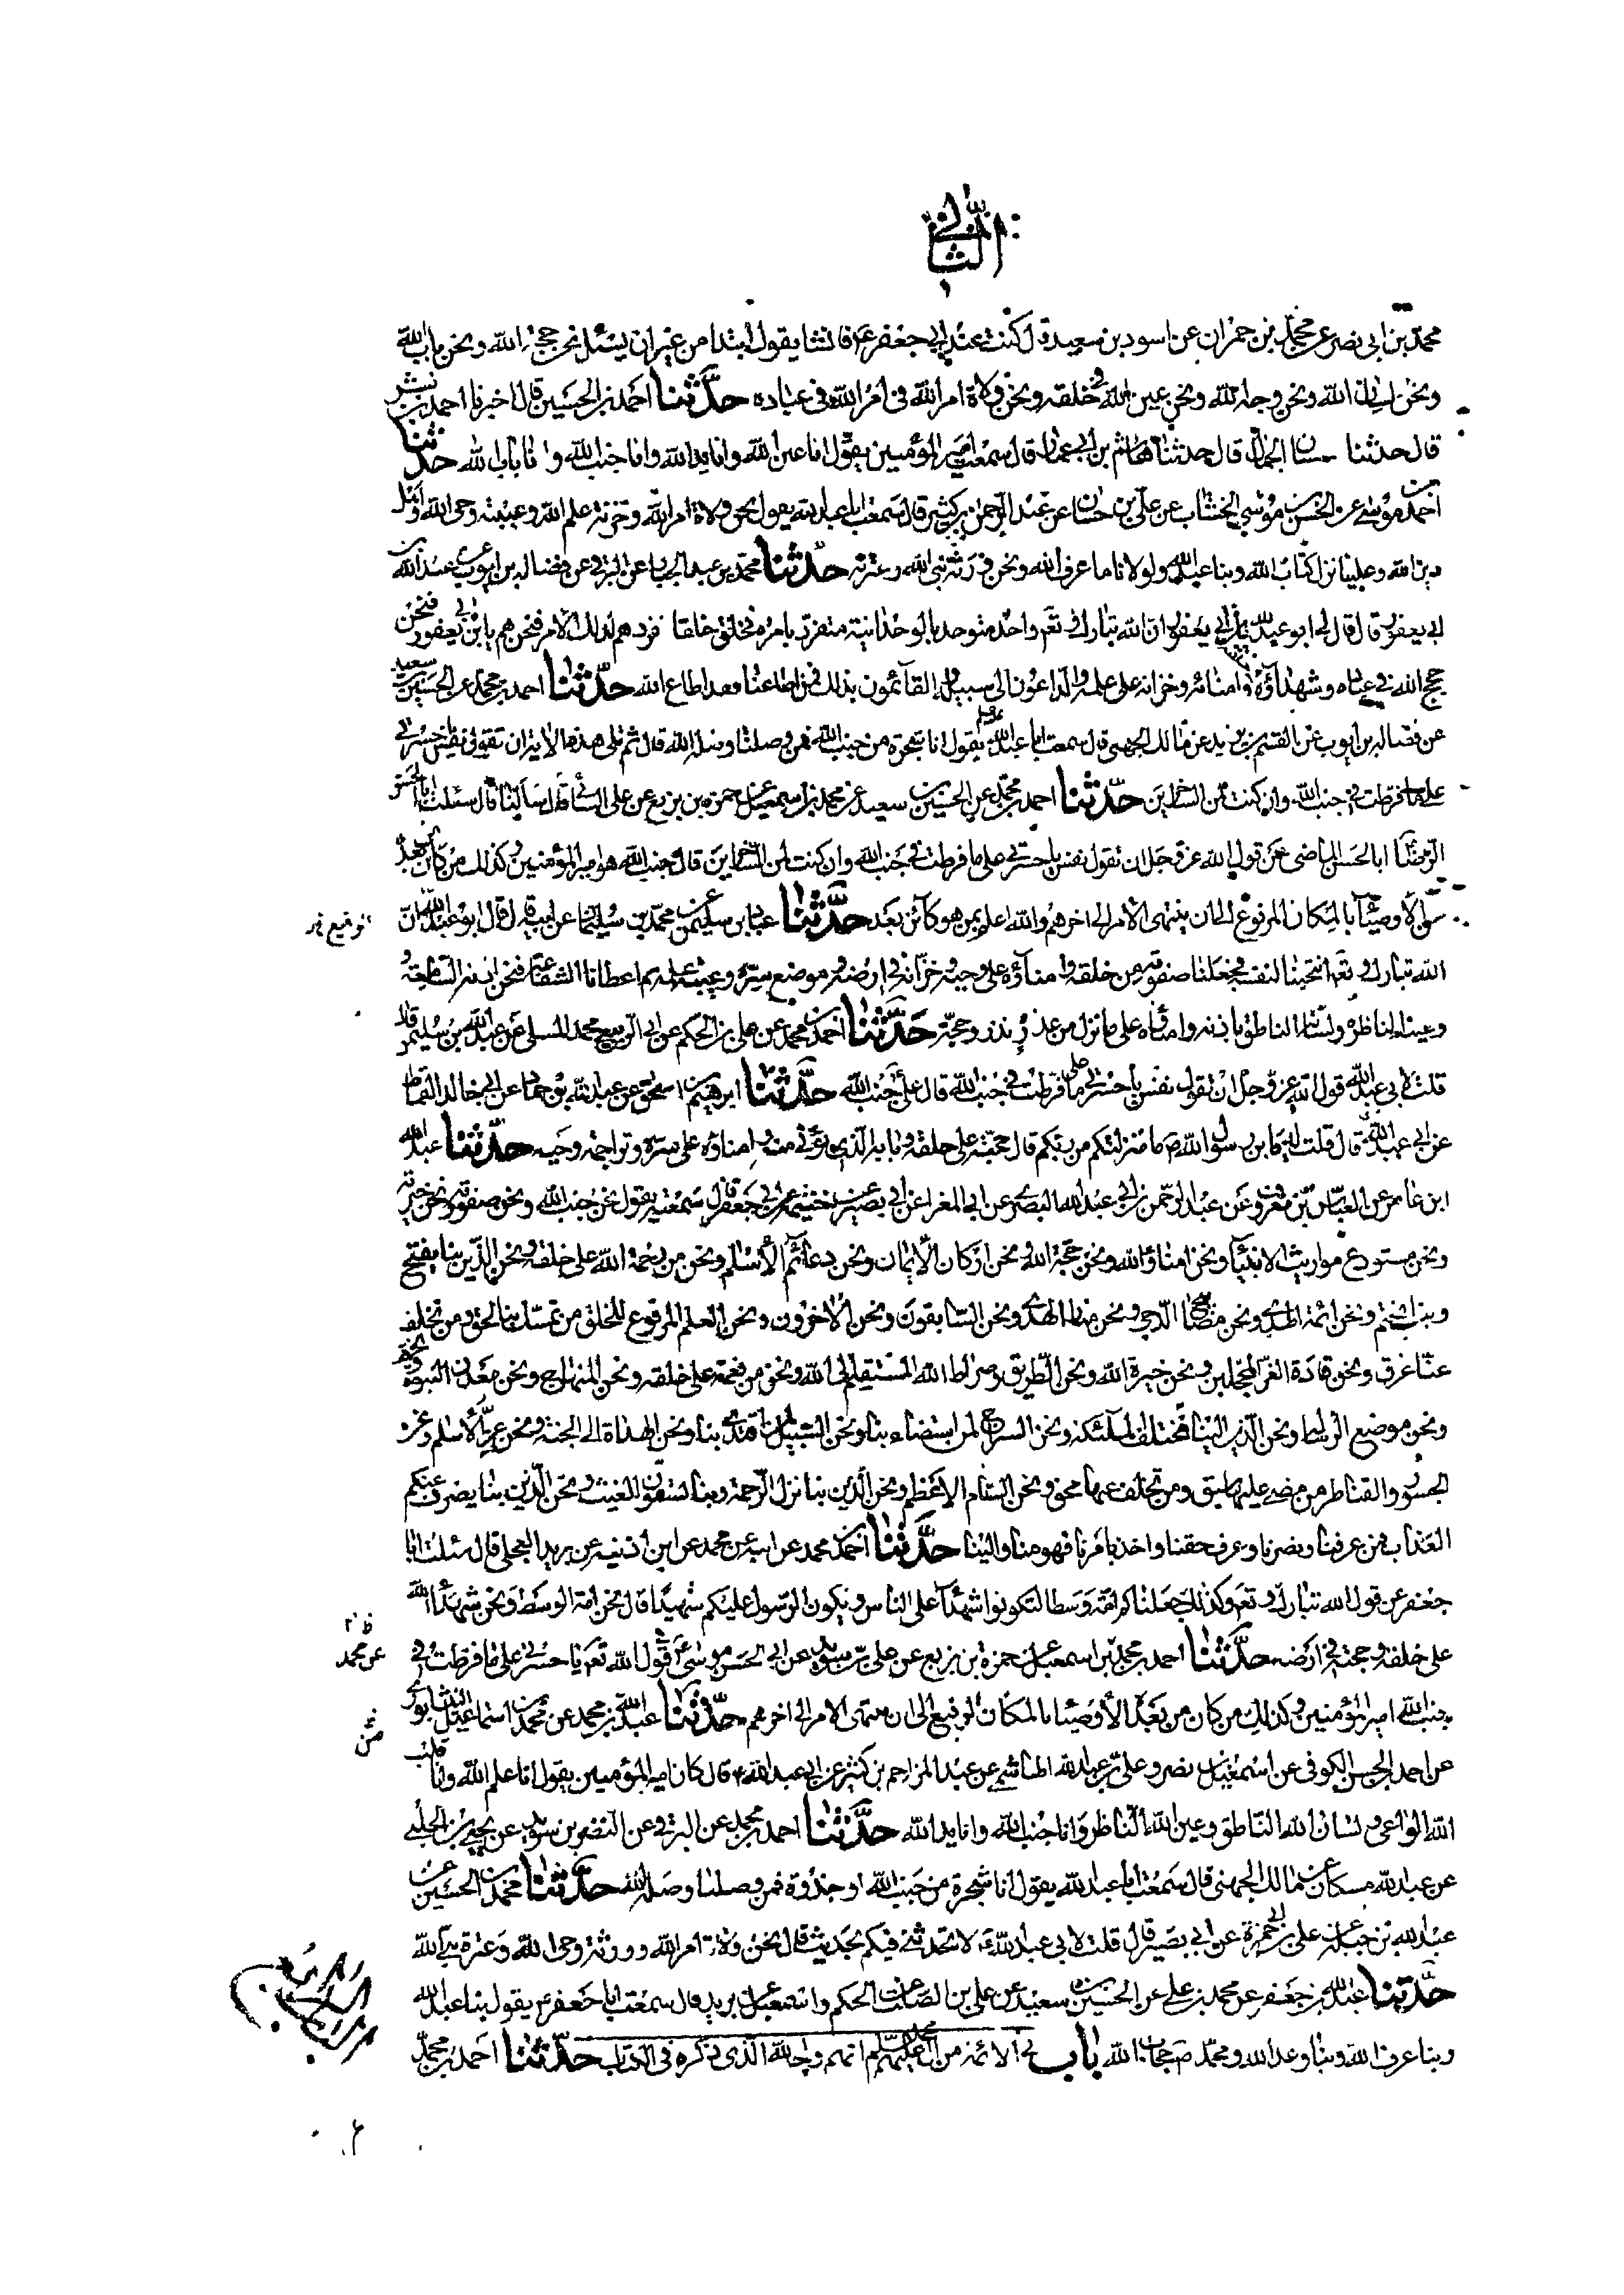 الجزء الثاني
محمد بن ابى نصر عن محمد بن حمران عن اسود بن سعيد قال كنت عند ابى جعفر ع فانشا يقول ابتدا من غير ان يسئل نحن حجة الله ونحن باب الله
ونحن لسان الله ونحن وجه الله ونحن عين الله فى خلقه ونحن ولاة امر الله فى عباده حدثنا احمد بن الحسين قال اخبرنا احمد بن بشر
قال حدثنا حسان الجمال قال حدثنا هاشم بن ابى عمار قال سمعت امير المؤمنين يقول انا عين الله وانا يد الله وانا جنب الله وانا باب الله حدثنا
احمد بن موسى عن الحسن بن موسى الخشاب عن على بن حسان عن عبد الرحمن بن كثير قال سمعت ابا عبد الله يقول نحن ولاة امر الله وخزنة علم الله وعيبة وحى الله واهل
دين الله وعلينا نزل كتاب الله وبنا عبد الله ولولانا ما عرف الله ونحن ورثة نبى الله وعترته حدثنا محمد بن عبد الجبار عن البرقى عن فضالة بن ايوب عن عبد الله بن
ابى يعفور قال قال لى ابو عبد الله يابن ابى يعفور ان الله تبارك وتع واحد متوحد بالوحدانية متفرد بامره فخلق خلقا ففردهم لذلك الامر فنحن هم يابن ابى يعفور فنحن
حجج الله فى عباده وشهداؤه وامنائه وخزانه على علمه والداعون الى سبيله والقائمون بذلك فمن اطاعنا فقد اطاع الله حدثنا احمد بن محمد عن الحسين بن سعيد
عن فضالة بن ايوب عن القسم بن يزيد عن مالك الجهنى قال سمعت ابا عبد الله يقول انا شجرة من جنب الله فمن وصلنا وصله الله قال ثم تلى هذه الاية ان تقول نفس يا حسرتى
على ما فرطت فى جنب الله وان كنت لمن الساخرين حدثنا احمد بن محمد عن الحسين بن سعيد عن محمد بن اسمعيل عن حمزة بن بزيع عن على السائى قال سئلت ابا الحسن
الماضى عن قول الله عز وجل ان تقول نفس يا حسرتى على ما فرطت فى جنب الله وان كنت لمن الساخرين قال جنب الله هو امير المؤمنين وكذلك من كان بعده
من الاوصياء بالمكان المرفوع الى ان ينتهى الامر الى اخرهم والله اعلم بمن هو كائن بعد حدثنا عباد بن سليمن عن محمد بن سليمان عن ابيه قال قال ابو عبد الله ان
الله تبارك وتع انتجبنا لنفسه فجعلنا صفوته من خلقه وامناؤه على وحيه وخزانه فى ارضه وموضع سره وعيبة علمه ثم اعطانا الشفاعة فنحن اذنه السامعة
وعينه الناظرة ولسانه الناطق باذنه وامناؤه على ما نزل من عذر ونذر وحجة حدثنا احمد بن محمد عن على بن الحكم عن ابى الربيع محمد المسلى عن عبد الله بن سليمن قال
قلت لابى عبد الله قول الله عز وجل ان تقول نفس يا حسرتى على ما فرطت فى جنب الله قال على جنب الله حدثنا ابرهيم بن اسحق عن عبد الله بن حماد عن ابى خالد القماط
عن ابى عبد الله قال قلت له يابن رسول الله ص ما منزلتكم من ربكم قال حجته على خلقه وبابه الذى يؤتى منه وامناؤه على سره وتراجمة وحيه حدثنا عبد الله
ابن عامر عن العباس بن معروف عن عبد الرحمن بن ابى عبد الله البصرى عن ابى المغرا عن ابى بصير عن خيثمة عن ابى جعفر قال سمعته يقول نحن جنب الله ونحن صفوته ونحن خيرته
ونحن مستودع مواريث الانبياء ونحن امناؤ الله ونحن حجة الله ونحن اركان الايمان ونحن دعائم الاسلام ونحن من رحمة الله على خلقه ونحن الذين بنا يفتح
وبنا يختم ونحن ائمة الهدى ونحن مصابيح الدجى ونحن منار الهدى ونحن السابقون ونحن الاخرون ونحن العلم المرفوع للخلق من تمسك بنا لحق ومن تخلف
عنا غرق ونحن قادة الغر المحجلين ونحن خيرة الله ونحن الطريق وصراط الله المستقيم الى الله ونحن من نعمة على خلقه ونحن المنهاج ونحن معدن النبوة
ونحن موضع الرسالة ونحن الذين الينا مختلف الملئكة ونحن السراج لمن استضاء بنا ونحن السبيل لمن اقتدى بنا ونحن الهداة الى الجنة ونحن عرى الاسلم ونحن
الجسور والقناطر من مضى عليها سبق ومن تخلف عنها محق ونحن السنام الاعظم ونحن الذين بنا نزل الرحمة وبنا تسقون الغيث ونحن الذين بنا يصرف عنكم
العذاب فمن عرفنا ونصرنا وعرف حقنا واخذ بامرنا فهو منا والينا حدثنا احمد بن محمد عن ابيه عن محمد عن ابن اذينة عن بريد العجلى قال سئلت ابا
جعفر عن قول الله تبارك وتع وكذلك جعلناكم امة وسطا لتكونوا شهداء على الناس ويكون الرسول عليكم شهيدا قال نحن امة الوسط ونحن شهداء الله
على خلقه وحجته فى ارضه حدثنا احمد بن محمد بن اسمعيل حمزة بن بزيع عن على بن سويد عن ابى الحسن موسى فى قول الله تع يا حسرتى على ما فرطت فى
عن محمد
جنب الله امير المؤمنين وكذلك من كان من بعده الاوصياء بالمكان الرفيع الى ان ينتهى الامر الى اخرهم حدثنا عبد الله بن محمد عن محمد بن اسماعيل النيشابورى
عن احمد بن الحسن الكوفى عن اسمعيل بن نصر وعلى بن عبد الله الهاشمى عن عبد المزاحم بن كثير عن ابى عبد الله قال كان امير المؤمنين يقول انا علم الله وانا قلب
الله الواعى ولسان الله الناطق وعين الله الناظر وانا جنب الله وانا يد الله حدثنا احمد بن محمد عن البرقى عن النضر بن سويد عن يحيى بن الحلبى
عن عبد الله بن مسكان عن مالك الجهنى قال سمعت ابا عبد الله يقول انا شجرة من جنب الله او جذوة فمن وصلنا وصله الله حدثنا محمد بن الحسين عن
عبد الله بن جبلة عن على بن ابى حمزة عن ابى بصير قال قلت لابى عبد الله ع لا تحدثنى فيكم بحديث قال نحن ولاة امر الله وورثة وحى الله وعترة نبى الله
حدثنا عبد الله بن جعفر عن محمد بن على عن الحسين بن سعيد عن على بن الصلت عن الحكم واسمعيل بن بريد قال سمعت ابا جعفر ع يقول بنا عبد الله
وبنا عرف الله وبنا وعد الله ومحمد ص حجاب الله باب فى الائمة من آل محمد عليهم السلم انهم وجه الله الذى ذكره فى الكتاب حدثنا احمد بن محمد